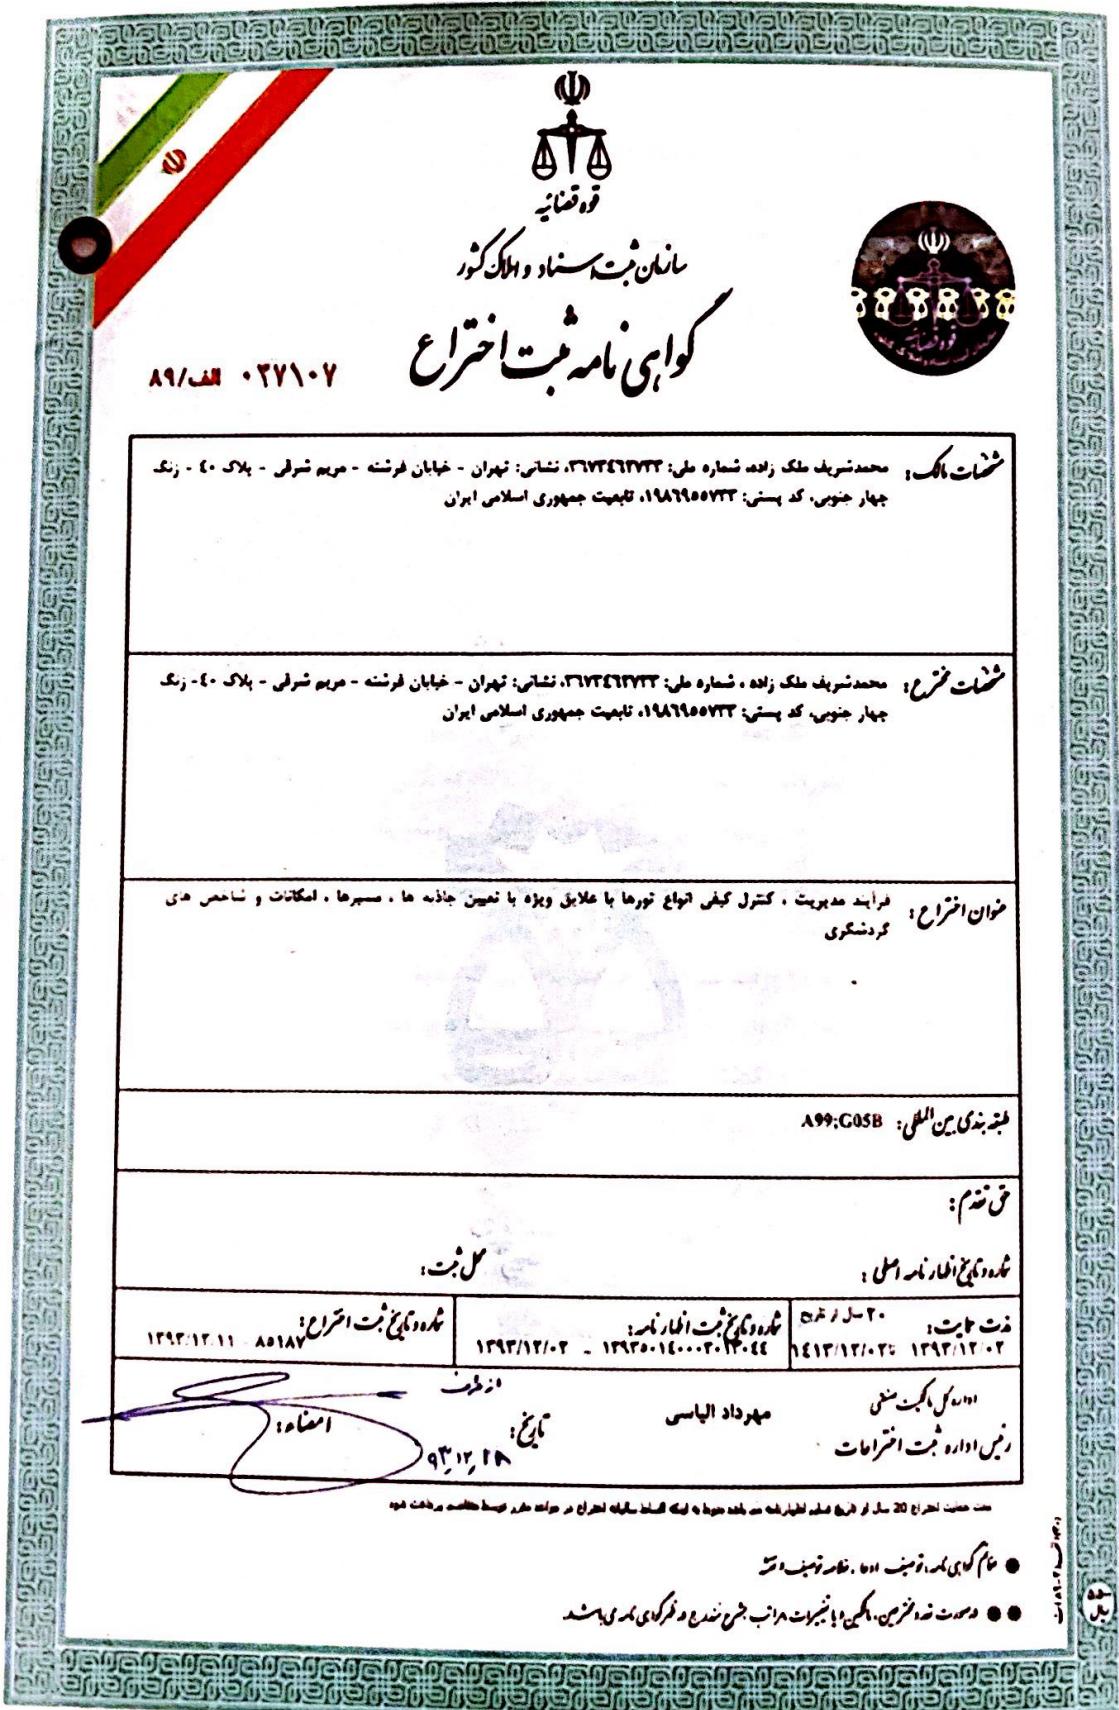 قوه قضائیه
سازمان ثبت اسناد و املاک کشور
گواهی نامه ثبت اختراع
۰۲۷۱۰۷ الف/۸۹
مشخصات مالک: محمدشریف ملک زاده، شماره ملی: ۳۶۷۳۴۶۲۷۳۳، نشانی: تهران - خیابان فرشته - مریم شرقی - پلاک ۴۰ - زنگ
چهار جنوبی، کد پستی: ۱۹۸۶۹۵۵۷۳۳، تابعیت جمهوری اسلامی ایران
مشخصات مخترع: محمدشریف ملک زاده ، شماره ملی: ۳۶۷۳۴۶۲۷۳۳، نشانی: تهران - خیابان فرشته - مریم شرقی - پلاک ۴۰- زنگ
چهار جنوبی، کد پستی: ۱۹۸۶۹۵۵۷۳۳، تابعیت جمهوری اسلامی ایران
عنوان اختراع: فرآیند مدیریت ، کنترل کیفی انواع تورها با علایق ویژه با تعیین جاذبه ها ، مسیرها ، امکانات و شاخص های
گردشگری
طبقه بندی بین المللی: A99;G05B
حق تقدم:
شماره و تاریخ اظهارنامه اصلی: محل ثبت:
مدت حمایت: ۲۰ سال از تاریخ
۱۳۹۳/۱۲/۰۲ تا ۱۴۱۳/۱۲/۰۲
شماره و تاریخ ثبت اظهارنامه:
۱۳۹۳۵۰۱۴۰۰۰۳۰۱۳۰۴۴ - ۱۳۹۳/۱۲/۰۲
شماره و تاریخ ثبت اختراع:
۸۵۱۸۷ - ۱۳۹۳/۱۲/۱۱
اداره کل مالکیت صنعتی
رئیس اداره ثبت اختراعات
مهرداد الیاسی
از طرف
تاریخ:
۹۳,۱۲,۲۸
امضاء:
مدت حمایت اختراع 20 سال از تاریخ تسلیم اظهارنامه می باشد منوط به اینکه اقساط سالیانه اختراع در مواعد مقرر توسط متقاضی پرداخت شود
● ضمائم گواهی نامه، توصیف، ادعا، خلاصه توصیف و نقشه
● ● درصورت تعدد مخترعین، مالکین و یا تغییرات مراتب بشرح مندرج در ظهر گواهی نامه می باشد